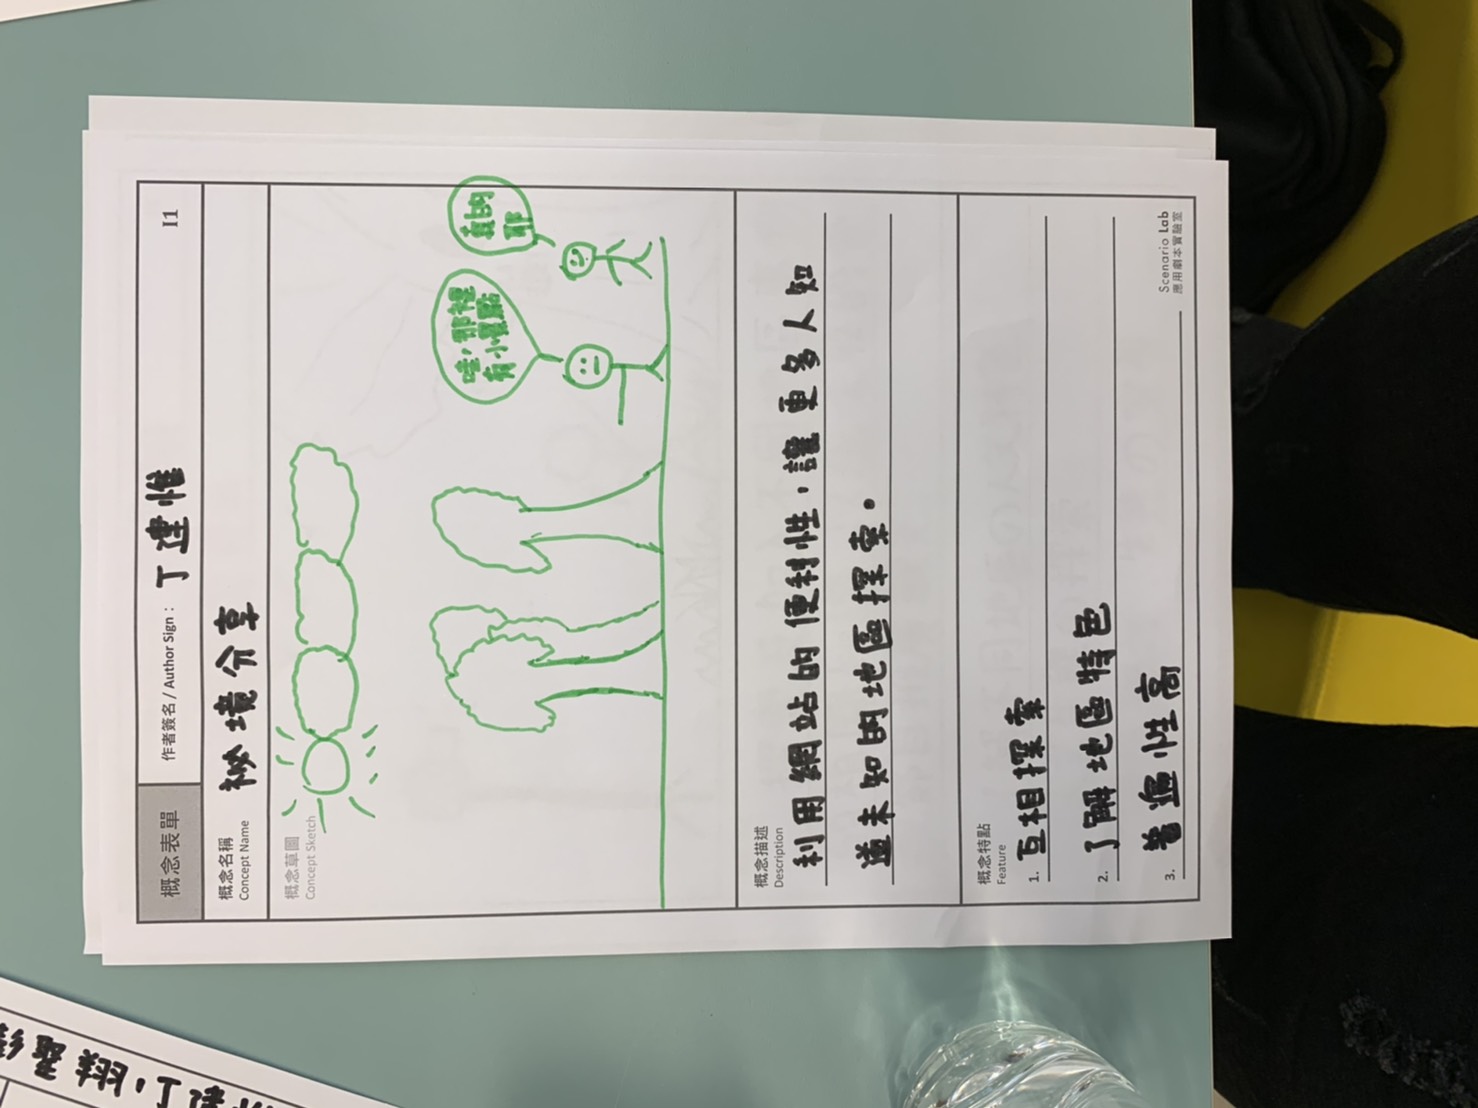 概念表單
作者簽名 / Author Sign : 丁建惟
I1
概念名稱
Concept Name
祕境分享
概念草圖
Concept Sketch
哇,那裡
有小景點
真的
耶
概念描述
Description
利用網站的便利性,讓更多人知
道未知的地區探索。
概念特點
Feature
1. 互相探索
2. 了解地區特色
3. 普遍性高
Scenario Lab
應用劇本實驗室
彭聖翔,丁建惟